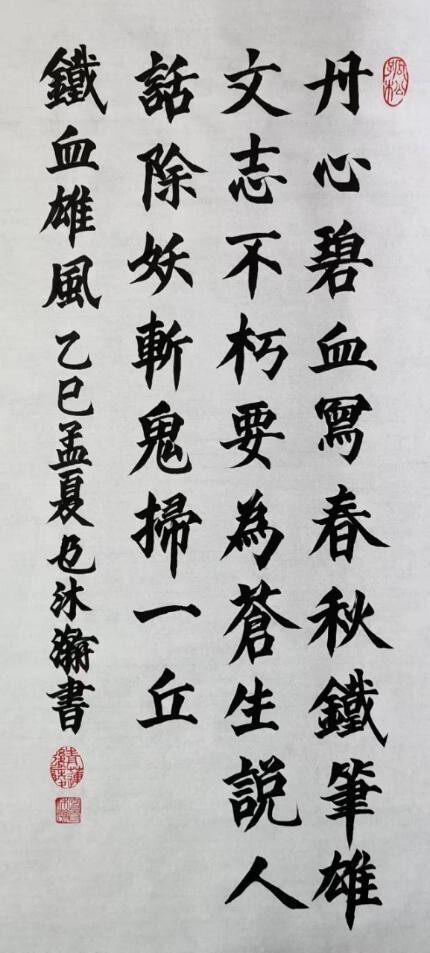 丹心碧血寫春秋鐵筆雄
文志不朽要為蒼生説人
話除妖斬鬼掃一丘
鐵血雄風乙巳孟夏也沐瀚書